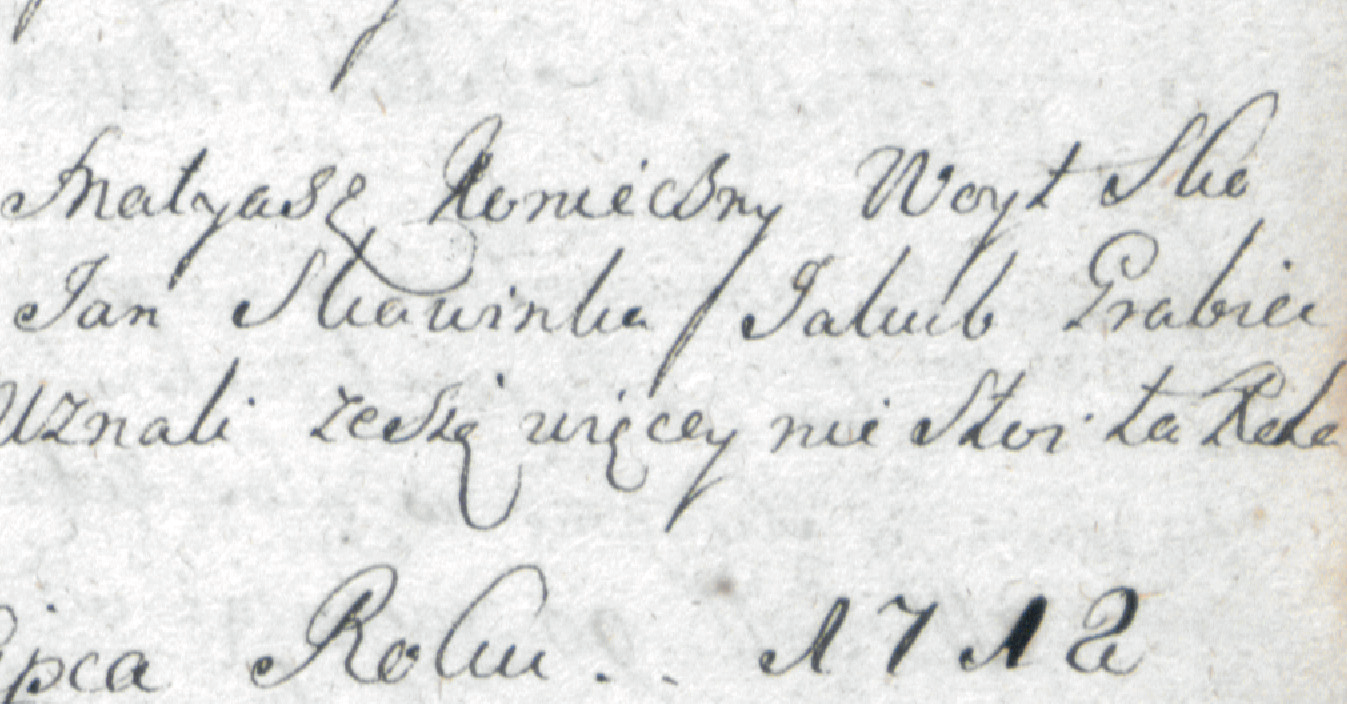 Matyasz Konieczny Woyt Sko
Jan Skawinka / Jakub Grabiec
Uznali ze się więcey nie stoi ta Rola
Lipca Roku . . 1712